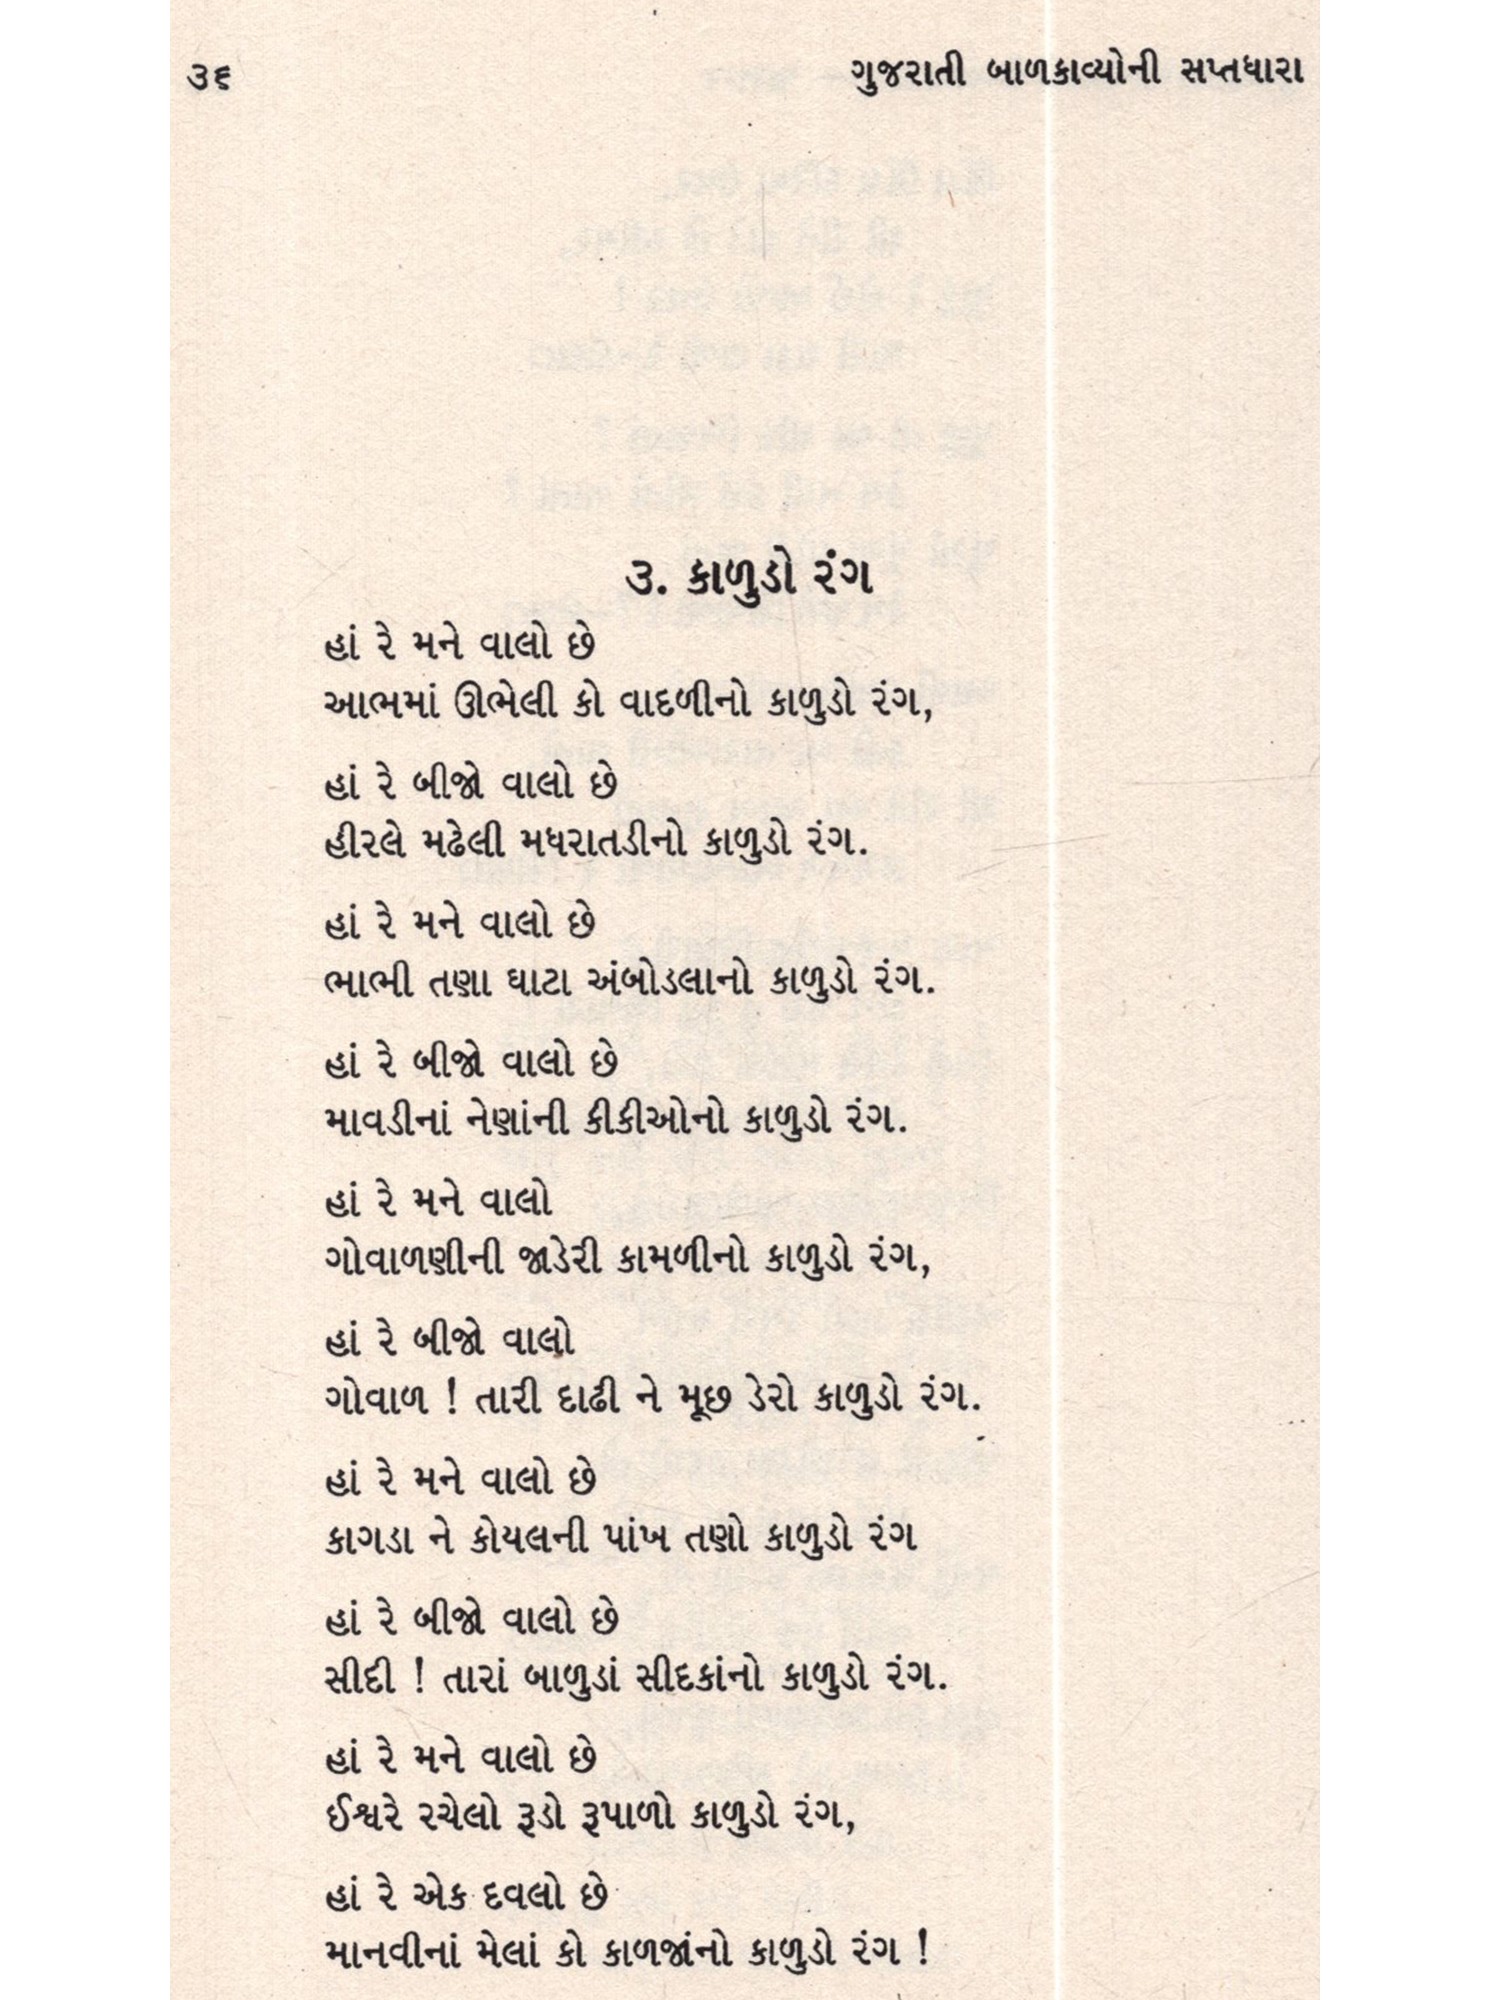 ૩૬
ગુજરાતી બાળકાવ્યોની સપ્તધારા
૩. કાળુડો રંગ
હાં રે મને વાલો છે
આભમાં ઊભેલી કો વાદળીનો કાળુડો રંગ,
હાં રે બીજો વાલો છે
હીરલે મઢેલી મધરાતડીનો કાળુડો રંગ.
હાં રે મને વાલો છે
ભાભી તણા ઘાટા અંબોડલાનો કાળુડો રંગ.
હાં રે બીજો વાલો છે
માવડીનાં નેણાંની કીકીઓનો કાળુડો રંગ.
હાં રે મને વાલો
ગોવાળણીની જાડેરી કામળીનો કાળુડો રંગ,
હાં રે બીજો વાલો
ગોવાળ ! તારી દાઢી ને મૂછ ડેરો કાળુડો રંગ.
હાં રે મને વાલો છે
કાગડા ને કોયલની પાંખ તણો કાળુડો રંગ
હાં રે બીજો વાલો છે
સીદી ! તારાં બાળુડાં સીદકાંનો કાળુડો રંગ.
હાં રે મને વાલો છે
ઈશ્વરે રચેલો રૂડો રૂપાળો કાળુડો રંગ,
હાં રે એક દવલો છે
માનવીનાં મેલાં કો કાળજાંનો કાળુડો રંગ !